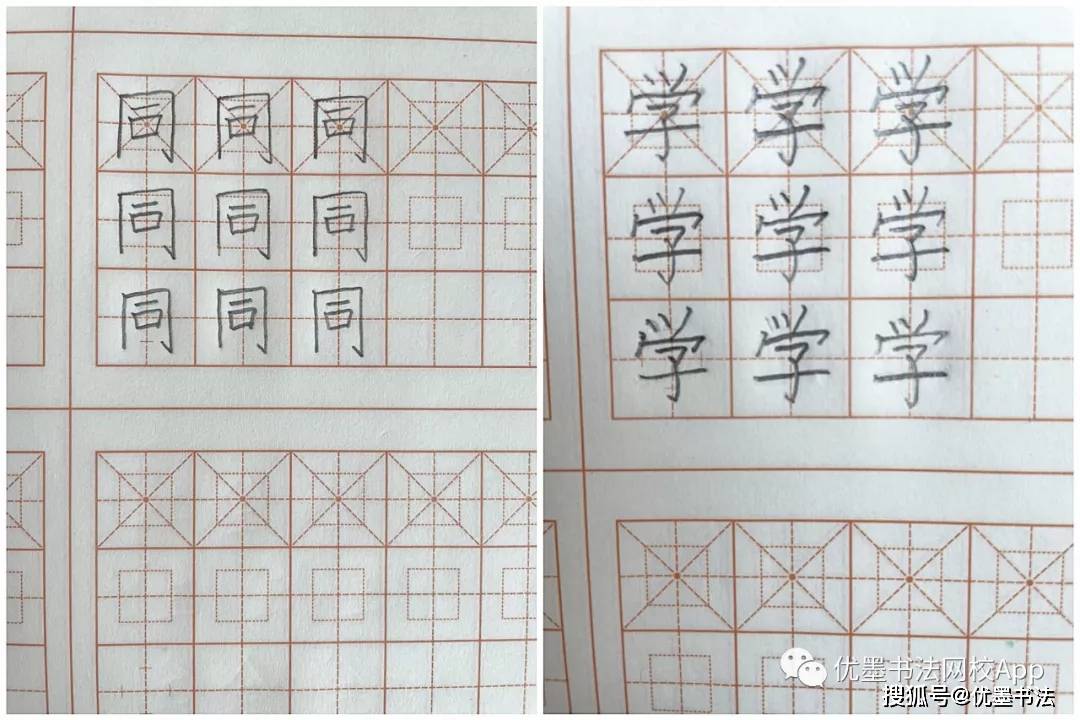 同同同
同同同
同同同
学学学
学学学
学学学
优墨书法网校App
搜狐号@优墨书法